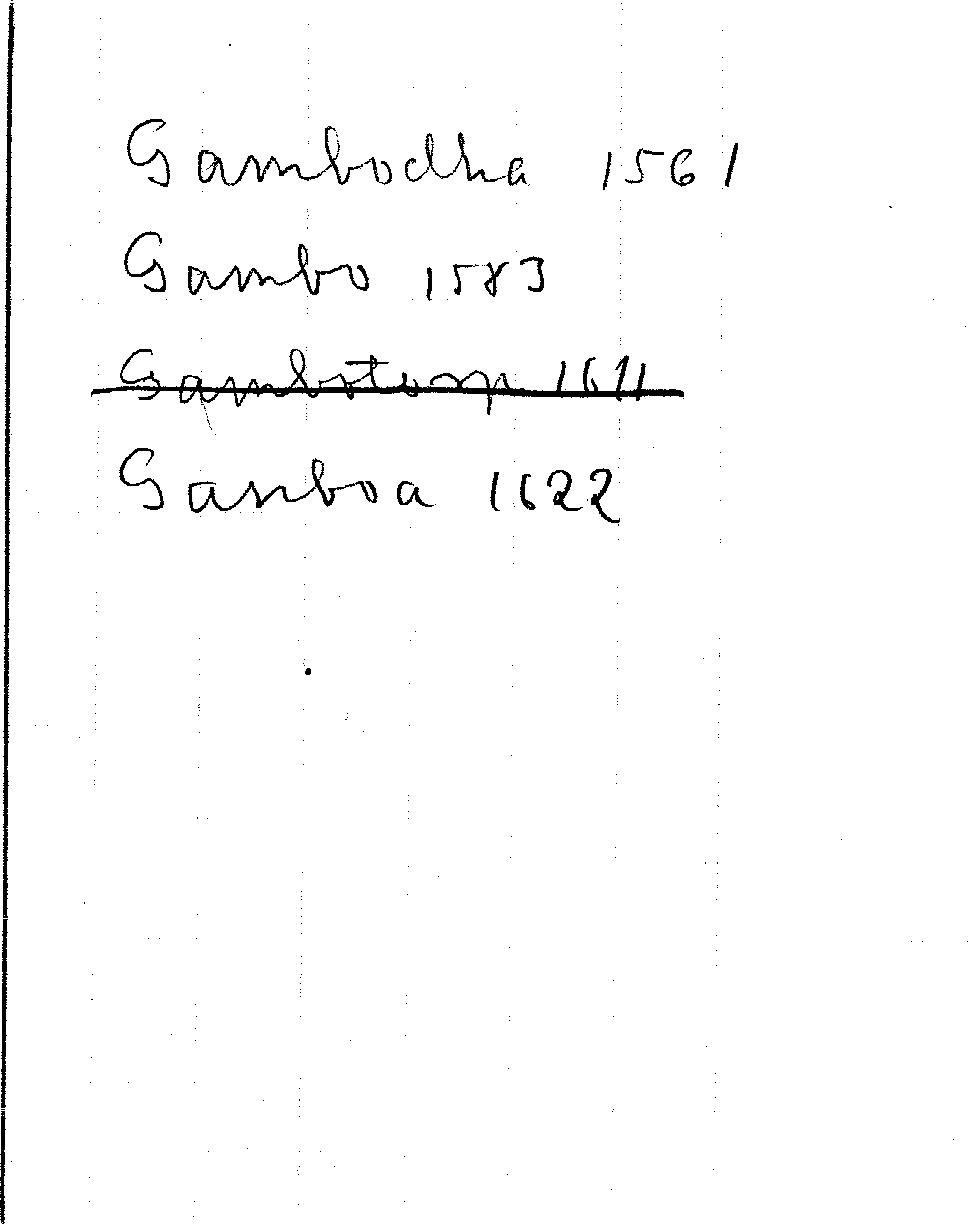 Gambodha 1561
Gambo 1583
Gambotorp 1611
Gamboa 1622